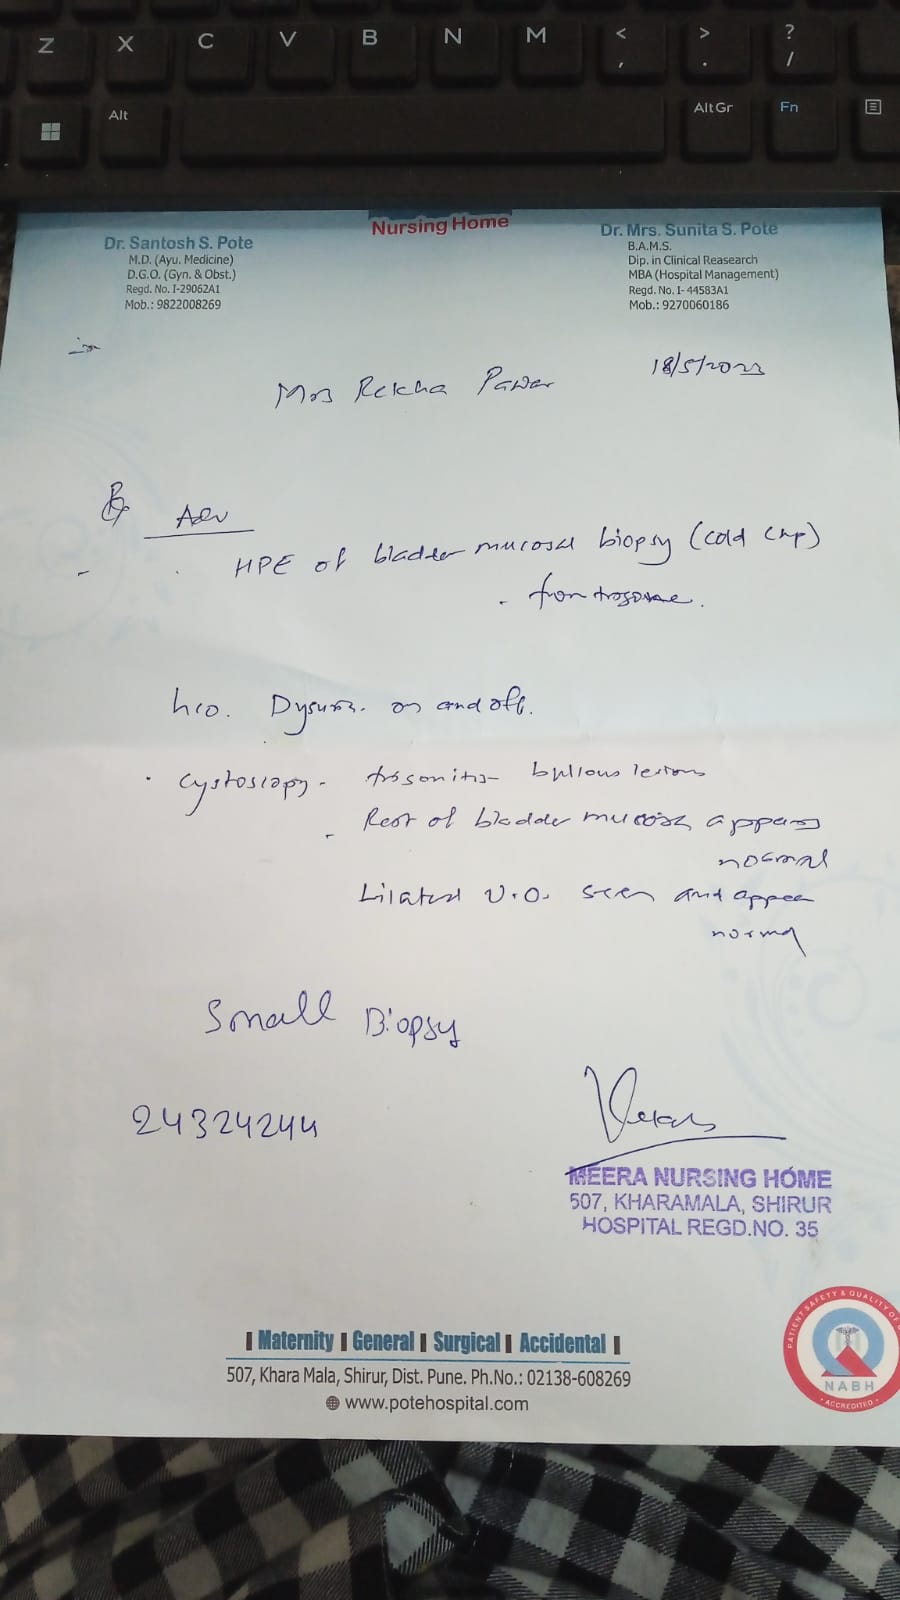 Z X C V B N M < , > . ? /
Alt Alt Gr Fn
Nursing Home
Dr. Santosh S. Pote
M.D. (Ayu. Medicine)
D.G.O. (Gyn. & Obst.)
Regd. No. I-29062A1
Mob.: 9822008269
Dr. Mrs. Sunita S. Pote
B.A.M.S.
Dip. in Clinical Reasearch
MBA (Hospital Management)
Regd. No. I- 44583A1
Mob.: 9270060186
18/5/2022
Mrs Rekha Pawar
Adv
HPE of bladder mucosal biopsy (cold cup)
- from trigone.
h/o. Dysuria. on and off.
. Cystoscopy - trigonitis bullous lesions
- Rest of bladder mucosa appears
normal
U.O. seen and appear
normal
Small Biopsy
24324244
MEERA NURSING HOME
507, KHARAMALA, SHIRUR
HOSPITAL REGD.NO. 35
Maternity | General | Surgical | Accidental
507, Khara Mala, Shirur, Dist. Pune. Ph.No.: 02138-608269
www.potehospital.com
PATIENT SAFETY & QUALITY OF
NABH
ACCREDITED